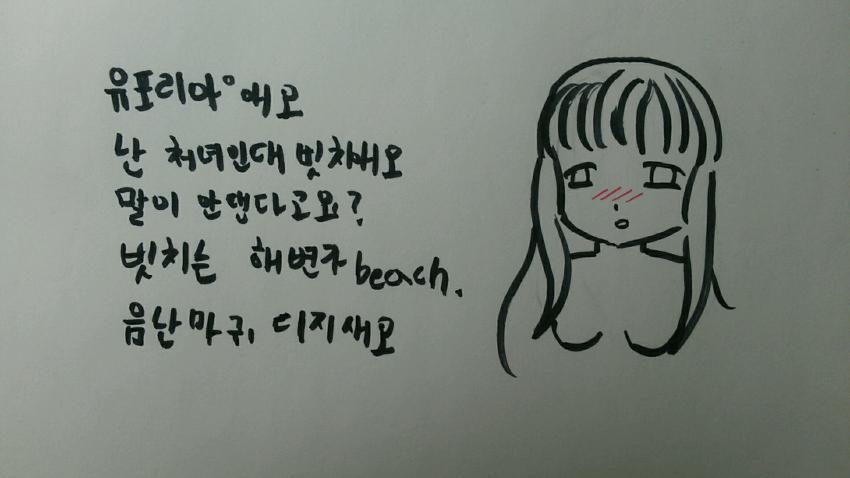 유포리아에오
난 처녀인대 빗치에오
말이 안댄다고요?
빗치는 해변가 beach.
음난마귀, 디지새오